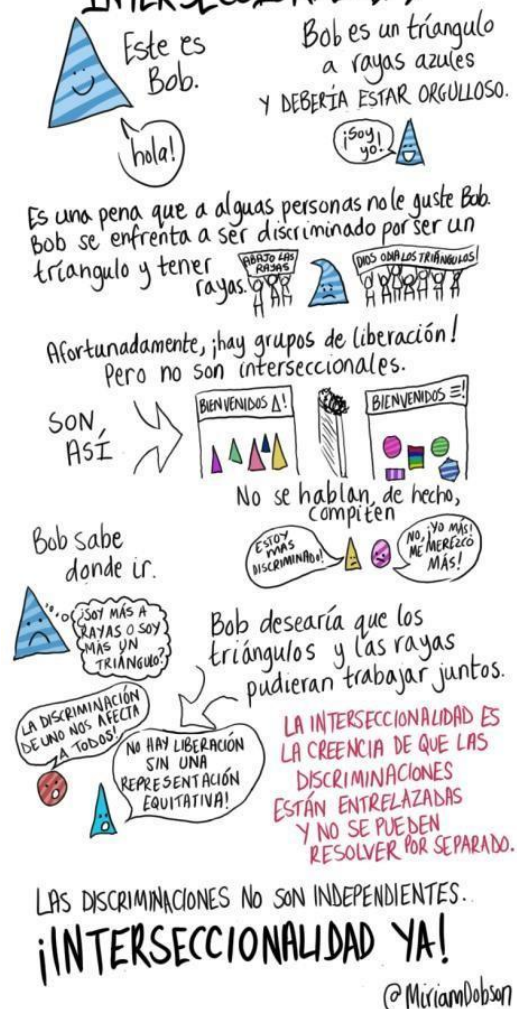 Este es
Bob.
¡hola!
Bob es un tríangulo
a rayas azules
Y DEBERÍA ESTAR ORGULLOSO.
¡soy
yo!
Es una pena que a alguas personas no le guste Bob.
Bob se enfrenta a ser discriminado por ser un
tríangulo y tener
rayas.
ABAJO LAS
RAYAS
DIOS ODIA LOS TRIÁNGULOS!
Afortunadamente, ¡hay grupos de liberación!
Pero no son interseccionales.
SON
ASÍ
BIENVENIDOS Δ!
BIENVENIDOS ☰!
No se hablan, de hecho,
compiten
ESTOY
MÁS
DISCRIMINADO!
NO, ¡YO MÁS!
ME MEREZCO
MÁS!
Bob sabe
donde ir.
¿SOY MÁS A
RAYAS O SOY
MÁS UN
TRIÁNGULO?
Bob desearía que los
triángulos y las rayas
pudieran trabajar juntos.
LA DISCRIMINACIÓN
DE UNO NOS AFECTA
A TODOS!
NO HAY LIBERACIÓN
SIN UNA
REPRESENTACIÓN
EQUITATIVA!
LA INTERSECCIONALIDAD ES
LA CREENCIA DE QUE LAS
DISCRIMINACIONES
ESTÁN ENTRELAZADAS
Y NO SE PUEDEN
RESOLVER POR SEPARADO.
LAS DISCRIMINACIONES NO SON INDEPENDIENTES.
¡INTERSECCIONALIDAD YA!
@MiriamDobson